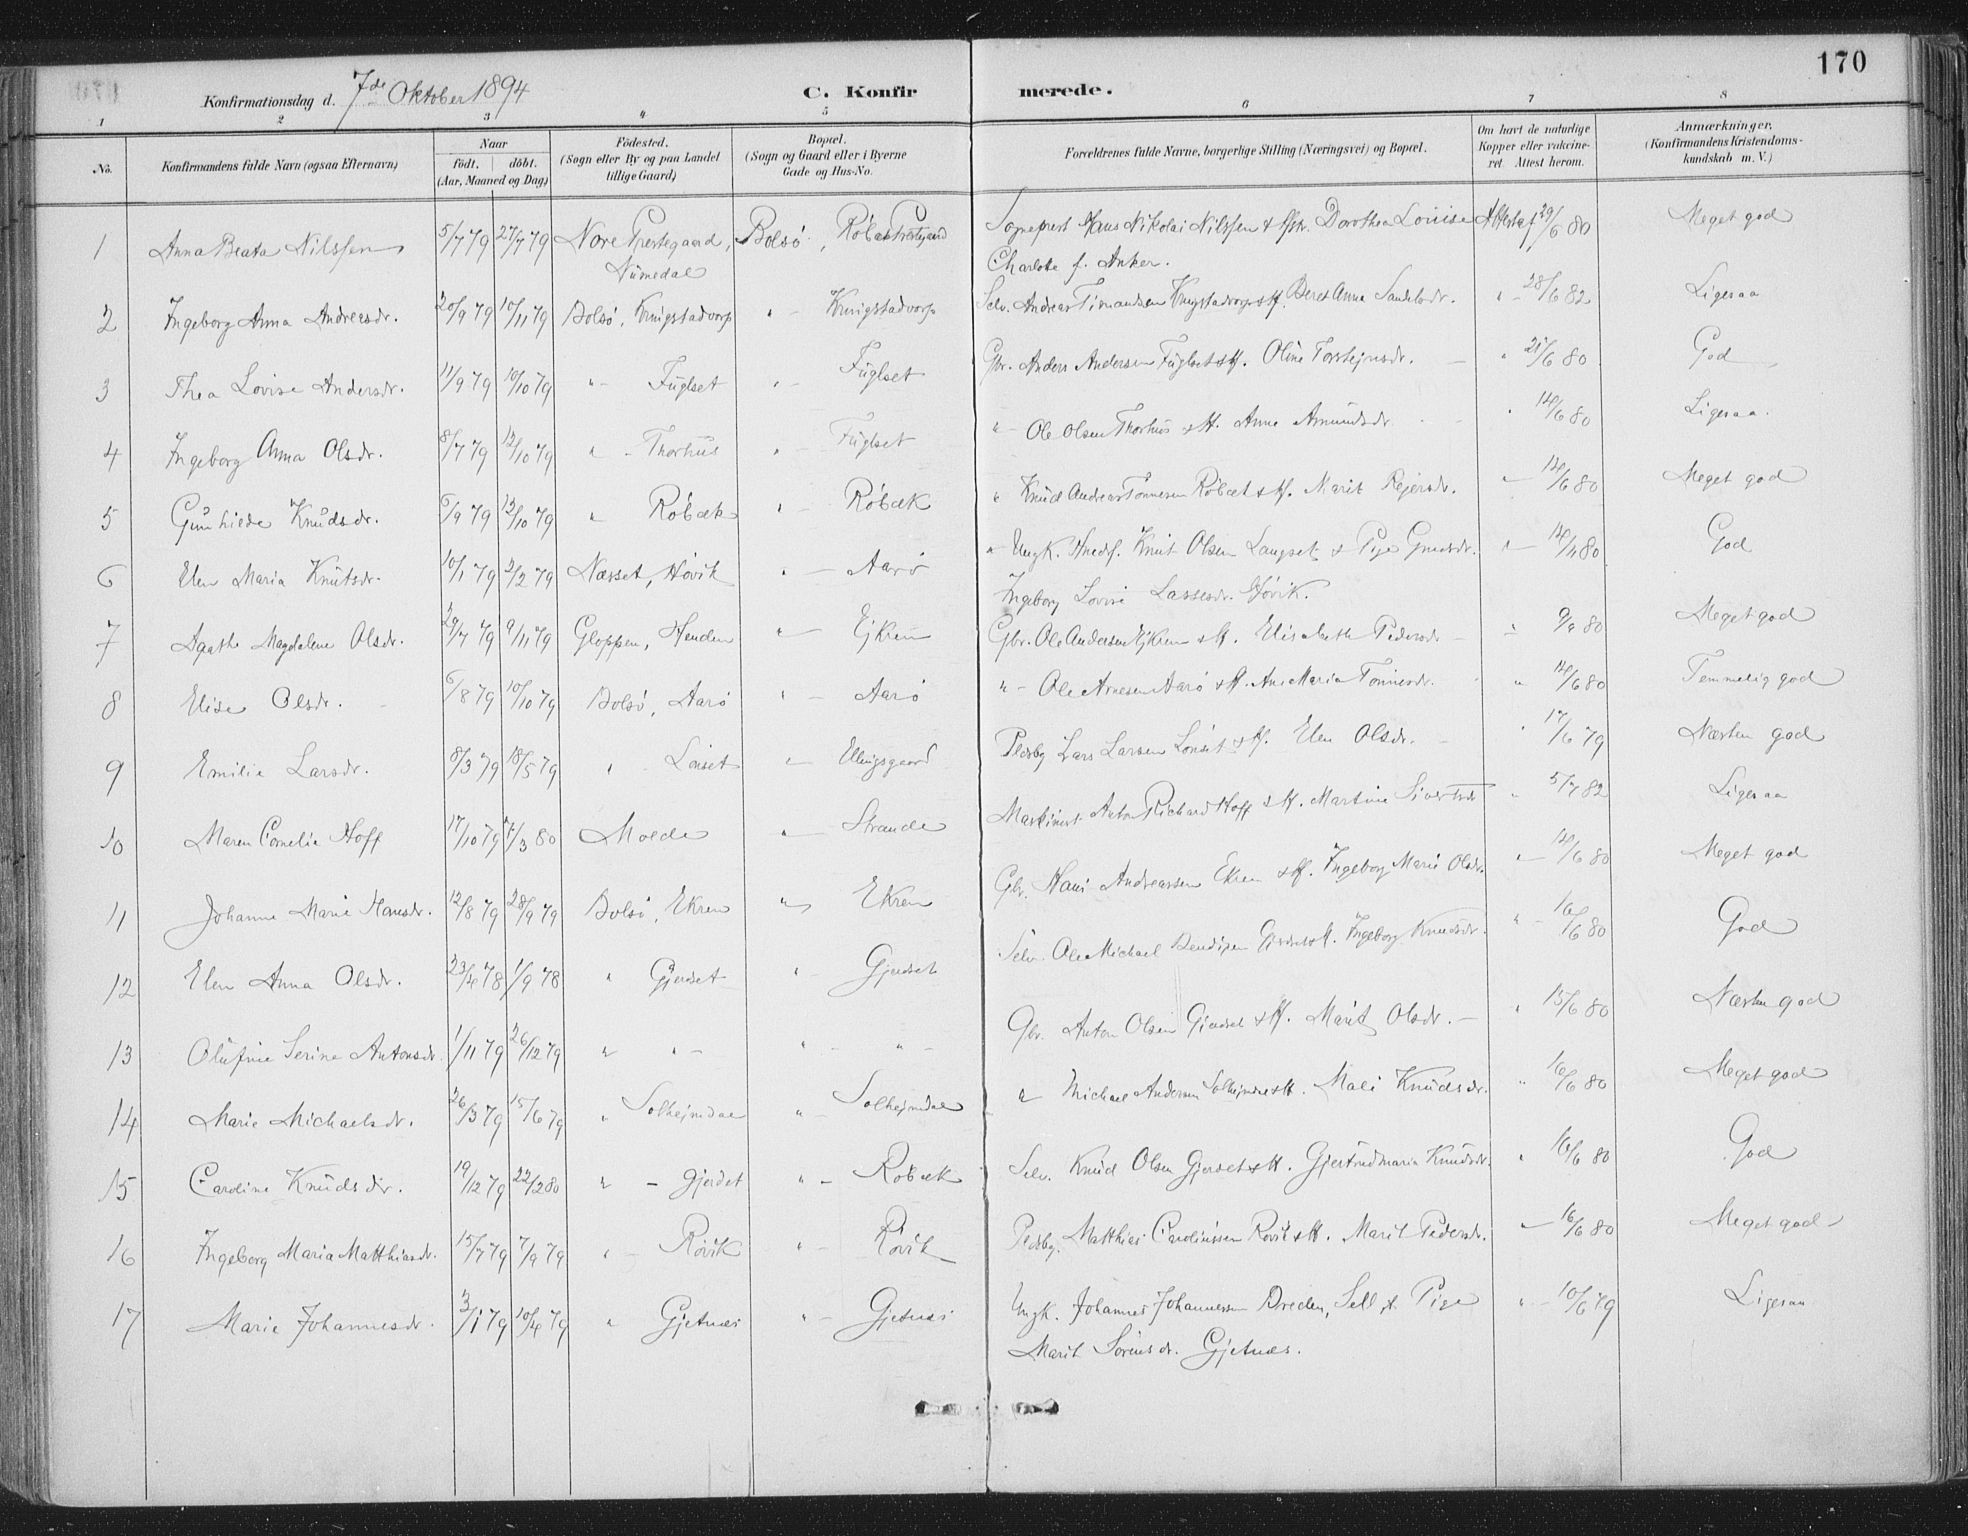 170
Konfirmationsdag d. 7de Oktober 1894 C. Konfirmerede.
1 2 3 4 5 6 7 8
No. Konfirmandens fulde Navn (ogsaa Efternavn) Naar født. døbt. (Aar, Maaned og Dag) Fødested. (Sogn eller By og paa Landet tillige Gaard) Bopæl. (Sogn og Gaard eller i Byerne Gade og Hus-No. Forældrenes fulde Navne, borgerlige Stilling (Næringsvei) og Bopæl. Om havt de naturlige Kopper eller vakcineret. Attest herom. Anmærkninger. (Konfirmandens Kristendomskundskab m. V.)
1 Anna Beata Nilssen 5/7 79 27/7 79 Nore Prestegaard, Bolsø, Røbæk Prestegaard Sogneprest Hans Nikolai Nilssen & Dorothea Louise Attestat 29/6 80 Meget god
Numedal Charlotte f. Anker.
2 Ingeborg Anna Andreasdr. 20/9 79 10/11 79 Bolsø, Kringstadvorp " - Kringstadvorp Selv. Andreas Kringstadvorp & H. Beret Anna " - 28/6 82 Ligesaa
3 Thea Lovise Andersdr. 11/9 79 10/10 79 " - Fuglset " - Fuglset Gbr. Anders Andersen Fuglset & H. Oline Torstejnsdr. - " 21/6 80 God
4 Ingeborg Anna Olsdr. 8/7 79 12/10 79 " - Thorhus " - Fuglset " - Ole Olsen Thorhus & H. Anne Amundsdr. " 14/6 80 Ligesaa.
5 Gunhilde Knudsdr. 6/9 79 12/10 79 " Røbæk " - Røbæk " Knud Andreas Tønnesen Røbæk & H. Marit Rejersdr. " 14/6 80 Meget god
6 Elen Maria Knutsdr. 10/1 79 2/2 79 Næsset, Høvik " - Aarø " Ungk. Knut Olsen Langset & Pige " - 14/11 80 God
Ingeborg Lovise Lassesdr. Høvik.
7 Agathe Magdalene Olsdr. 29/7 79 9/11 79 Gloppen, Henden " - Ejkrem Gbr. Ole Andersen Ejkrem & H. Elisabeth Pedersdr - " 9/8 80 Meget god
8 Elise Olsdr. 6/8 79 10/10 79 Bolsø, Aarø " - Aarø " - Ole Arnesen Aarø & H. Ane Maria Tønnesdr. " 14/6 80 Temmelig god
9 Emilie Larsdr. 8/3 79 18/5 79 " Lønset " - Ellingsgaard Pladsbg. Lars Larsen Lønset & H. Elen Olsdr. - " 17/6 79 Næsten god
10 Maren Cornelia Hoff 17/10 79 7/3 80 Molde " - Strande Maskinist Anton Richard Hoff & H. Martine Sivertsdr " 5/7 82 Ligesaa
11 Johanne Marie Hansdr. 12/8 79 28/9 79 Bolsø, Ekrem " Ekrem Gbr. Hans Andreassen Ekrem & H. Ingeborg Marie Olsdr. " - 14/6 80 Meget god
12 Elen Anna Olsdr. 23/4 78 1/9 78 " Gjerdset " - Gjerdset Selv. Ole Michael Bendixen Gjerdset & H. Ingeborg Knudsdr. " - 16/6 80 God
13 Olufine Serine Antonsdr. 1/11 79 26/12 79 " " - " - " - Gbr. Anton Olsen Gjerdset & H. Marit Olsdr. - " 15/6 80 Næsten god
14 Marie Michaelsdr. 26/3 79 15/6 79 " Solhejmdal " - Solhejmdal " Michael Andersen Solhejmdal & H. Mali Knudsdr. " 16/6 80 Meget god
15 Caroline Knudsdr. 19/12 79 22/2 80 " - Gjerdet " - Røbæk Selv. Knud Olsen Gjerdset & H. Gjertrud Maria Knudsdr. " 16/6 80 God
16 Ingeborg Maria Matthiasdr. 15/7 79 7/9 79 " - Røvik " - Røvik Pladsbg. Matthias Carolinssen Røvik & H. Marit Pedersdr. " 16/6 80 Meget god
17 Marie Johannesdr. 3/1 79 10/4 79 " Gjetnæs " - Gjetnæs Ungk. Johannes Johannessen Breden, Sell, & Pige " - 10/6 79 Ligesaa
Marit Sørensdr. Gjetnæs.